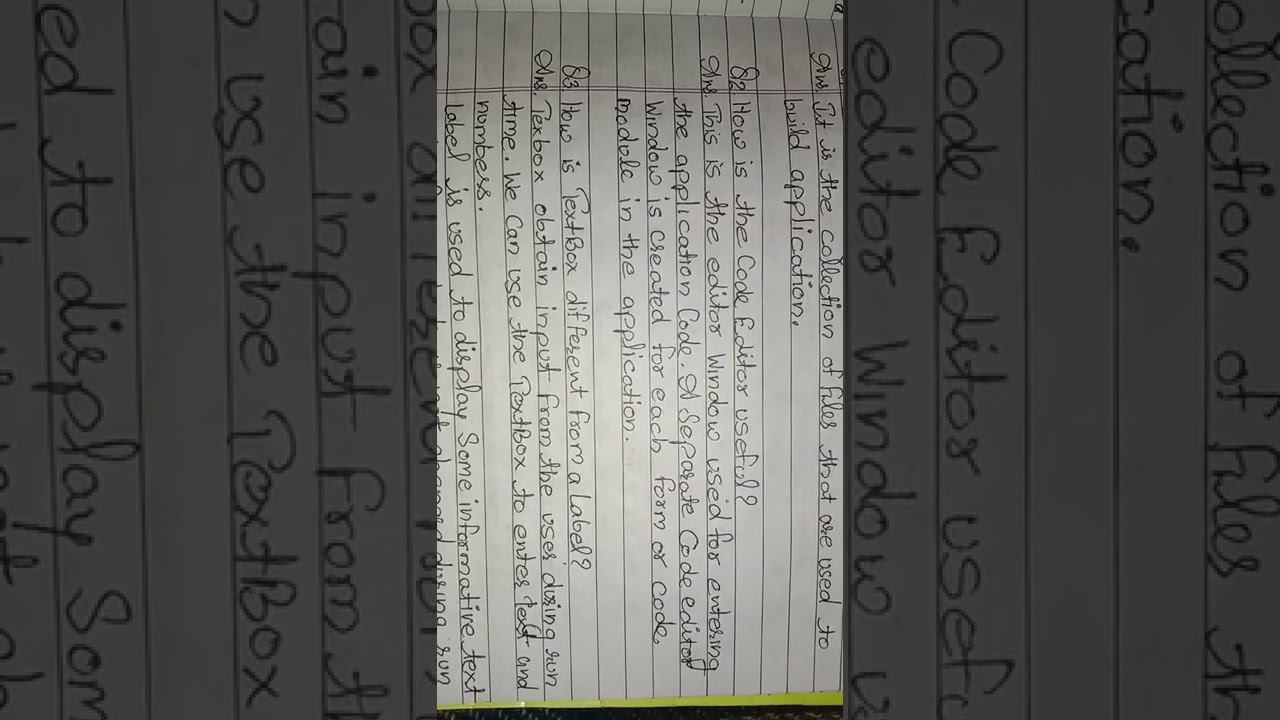 Ans. It is the collection of files that are used to
build application.
Q2 How is the Code Editor useful?
Ans. This is the editor Window used for entering
the application Code. A Separate Code editor
Window is created for each form or code
module in the application.
Q3 How is TextBox different from a label?
Ans. Texbox obtain input from the user during run
time. We Can use the TextBox to enter text and
numbers.
Label is used to display Some informative text